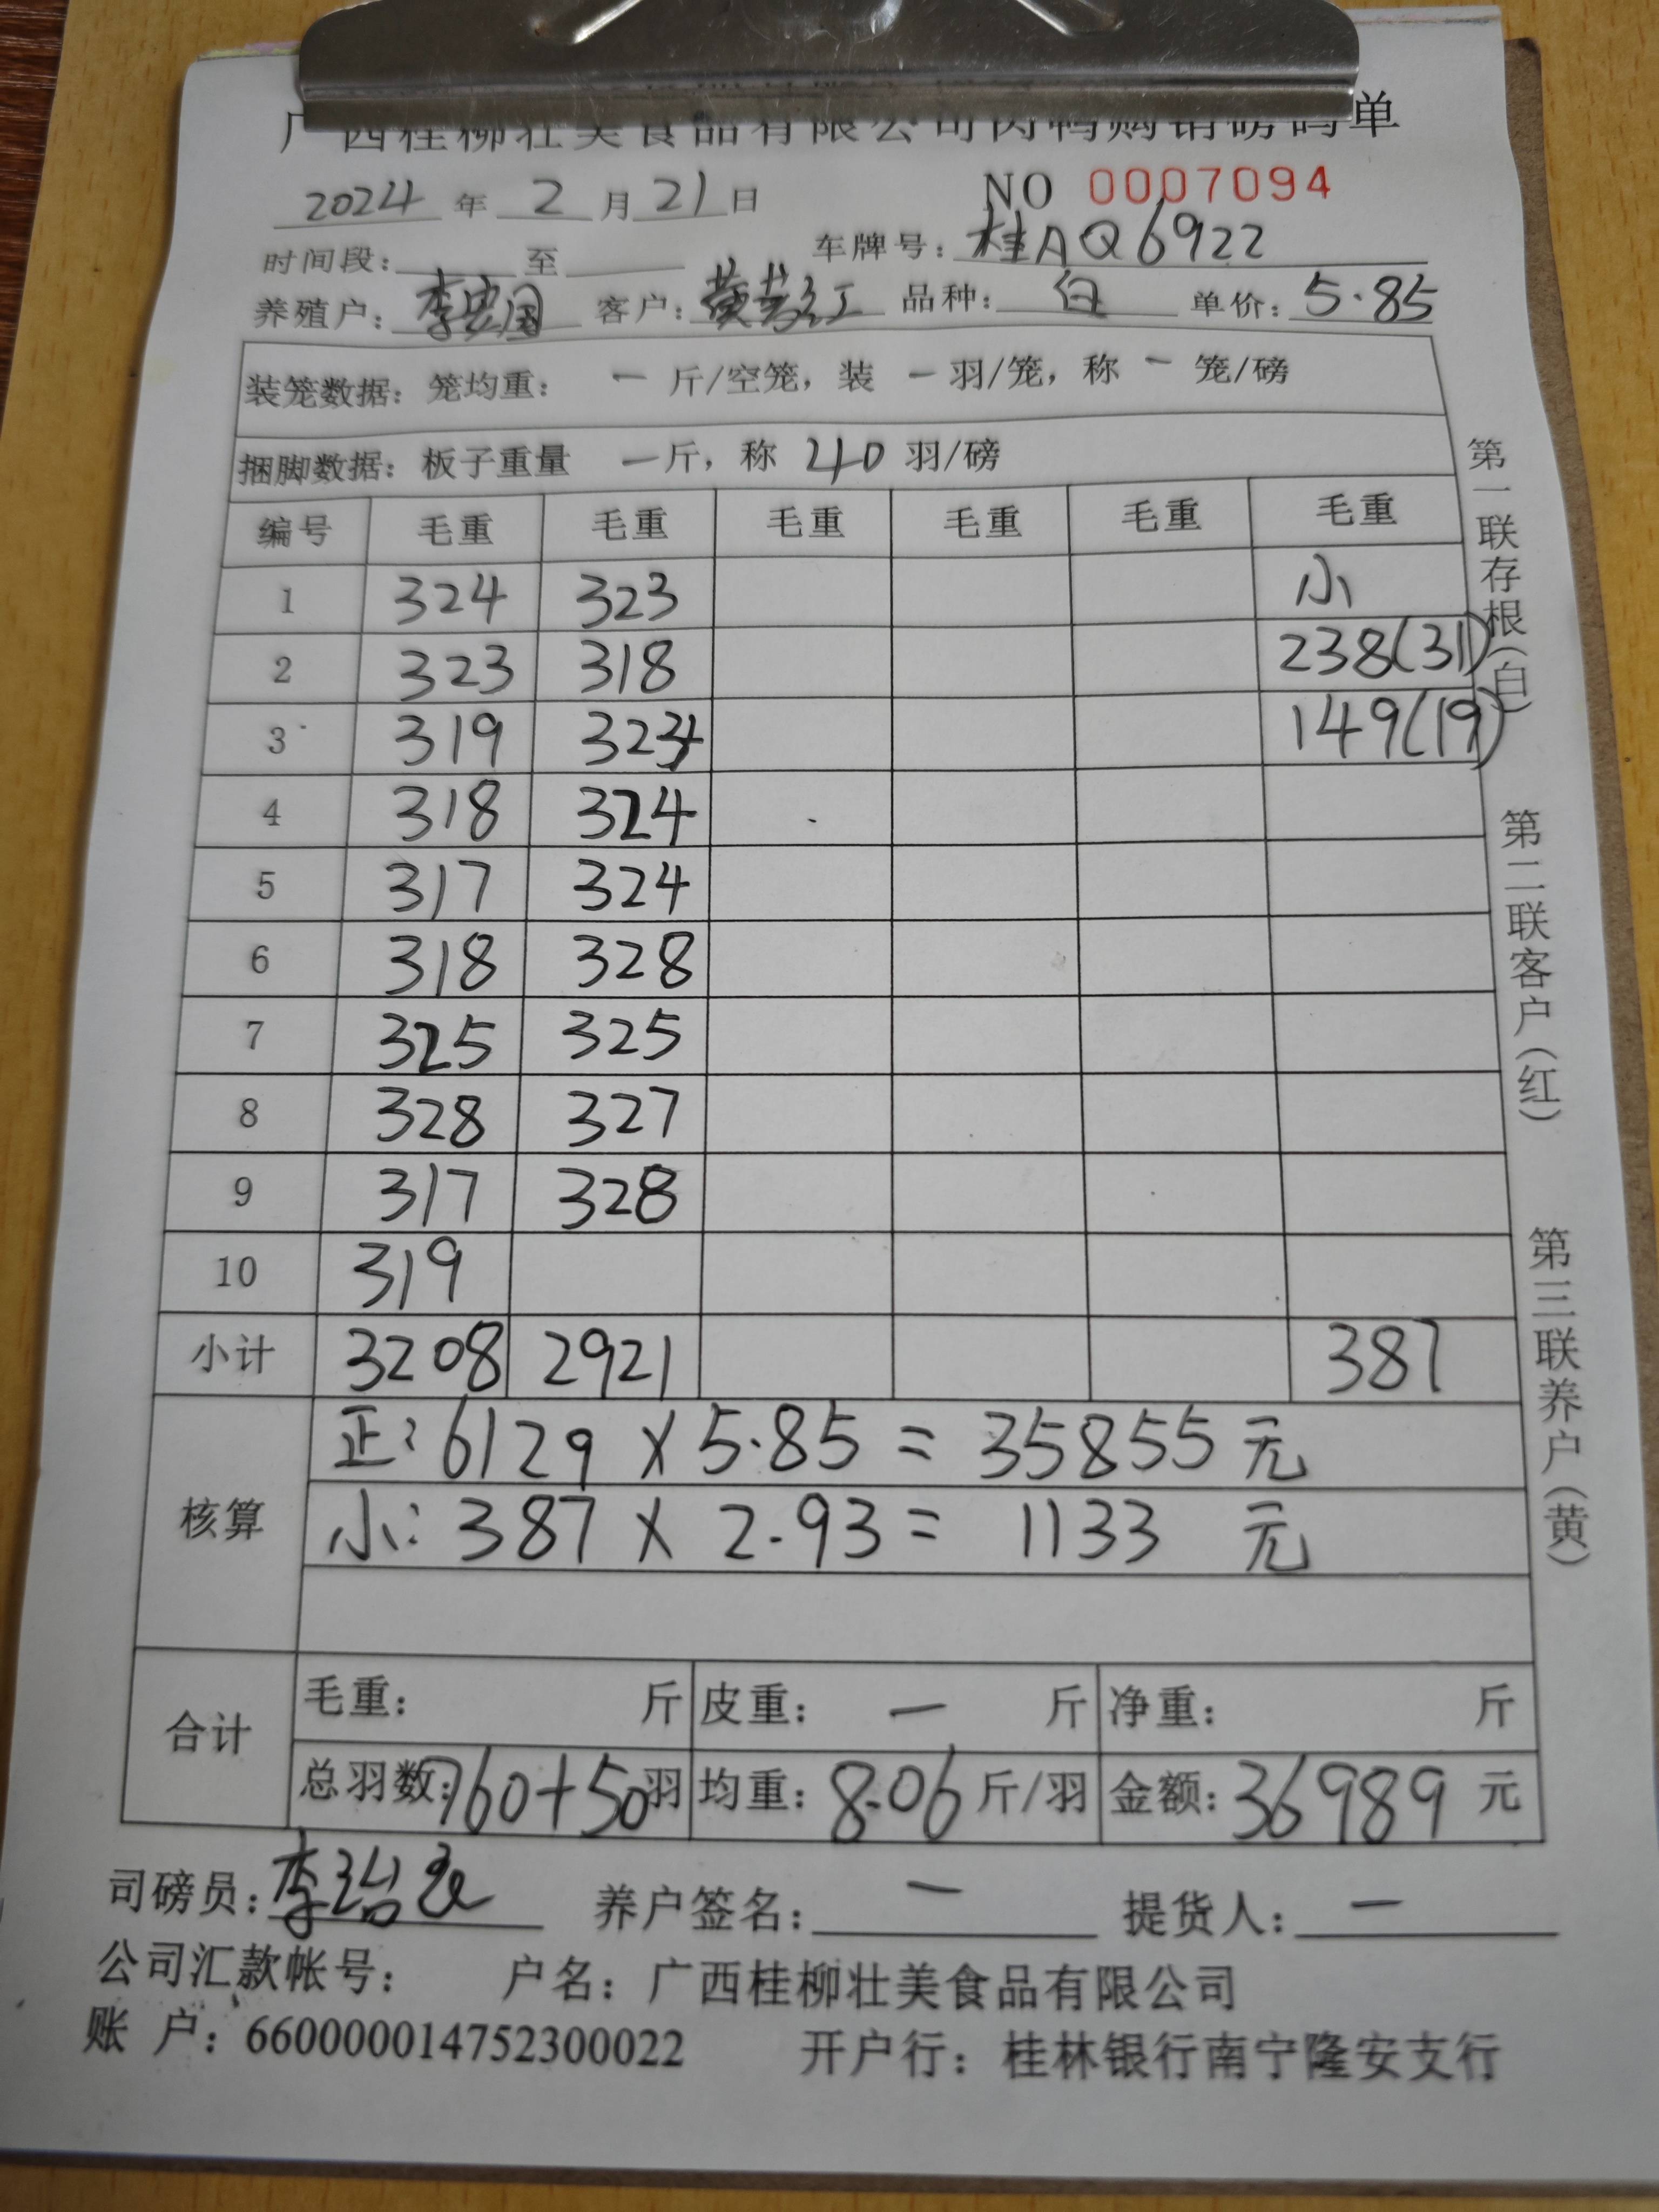 广西桂柳壮美食品有限公司肉鸭购销磅码单
2024 年 2 月 21 日 NO 0007094
时间段: 至 车牌号: 桂AQ6922
养殖户: 李宏国 客户: 黄芳红 品种: 白 单价: 5.85
装笼数据: 笼均重: 一 斤/空笼, 装 一 羽/笼, 称 一 笼/磅
捆脚数据: 板子重量 一 斤, 称 40 羽/磅
编号 毛重 毛重 毛重 毛重 毛重 毛重
1 324 323 小
2 323 318 238(31)
3 319 324 149(19)
4 318 324
5 317 324
6 318 328
7 325 325
8 328 327
9 317 328
10 319
小计 3208 2921 387
核算
正: 6129 × 5.85 = 35855 元
小: 387 × 2.93 = 1133 元
合计
毛重: 斤 皮重: 一 斤 净重: 斤
总羽数: 760+50 羽 均重: 8.06 斤/羽 金额: 36989 元
司磅员: 李 养户签名: 一 提货人: 一
公司汇款帐号: 户名: 广西桂柳壮美食品有限公司
账 户: 660000014752300022 开户行: 桂林银行南宁隆安支行
第一联存根(白)
第二联客户(红)
第三联养户(黄)